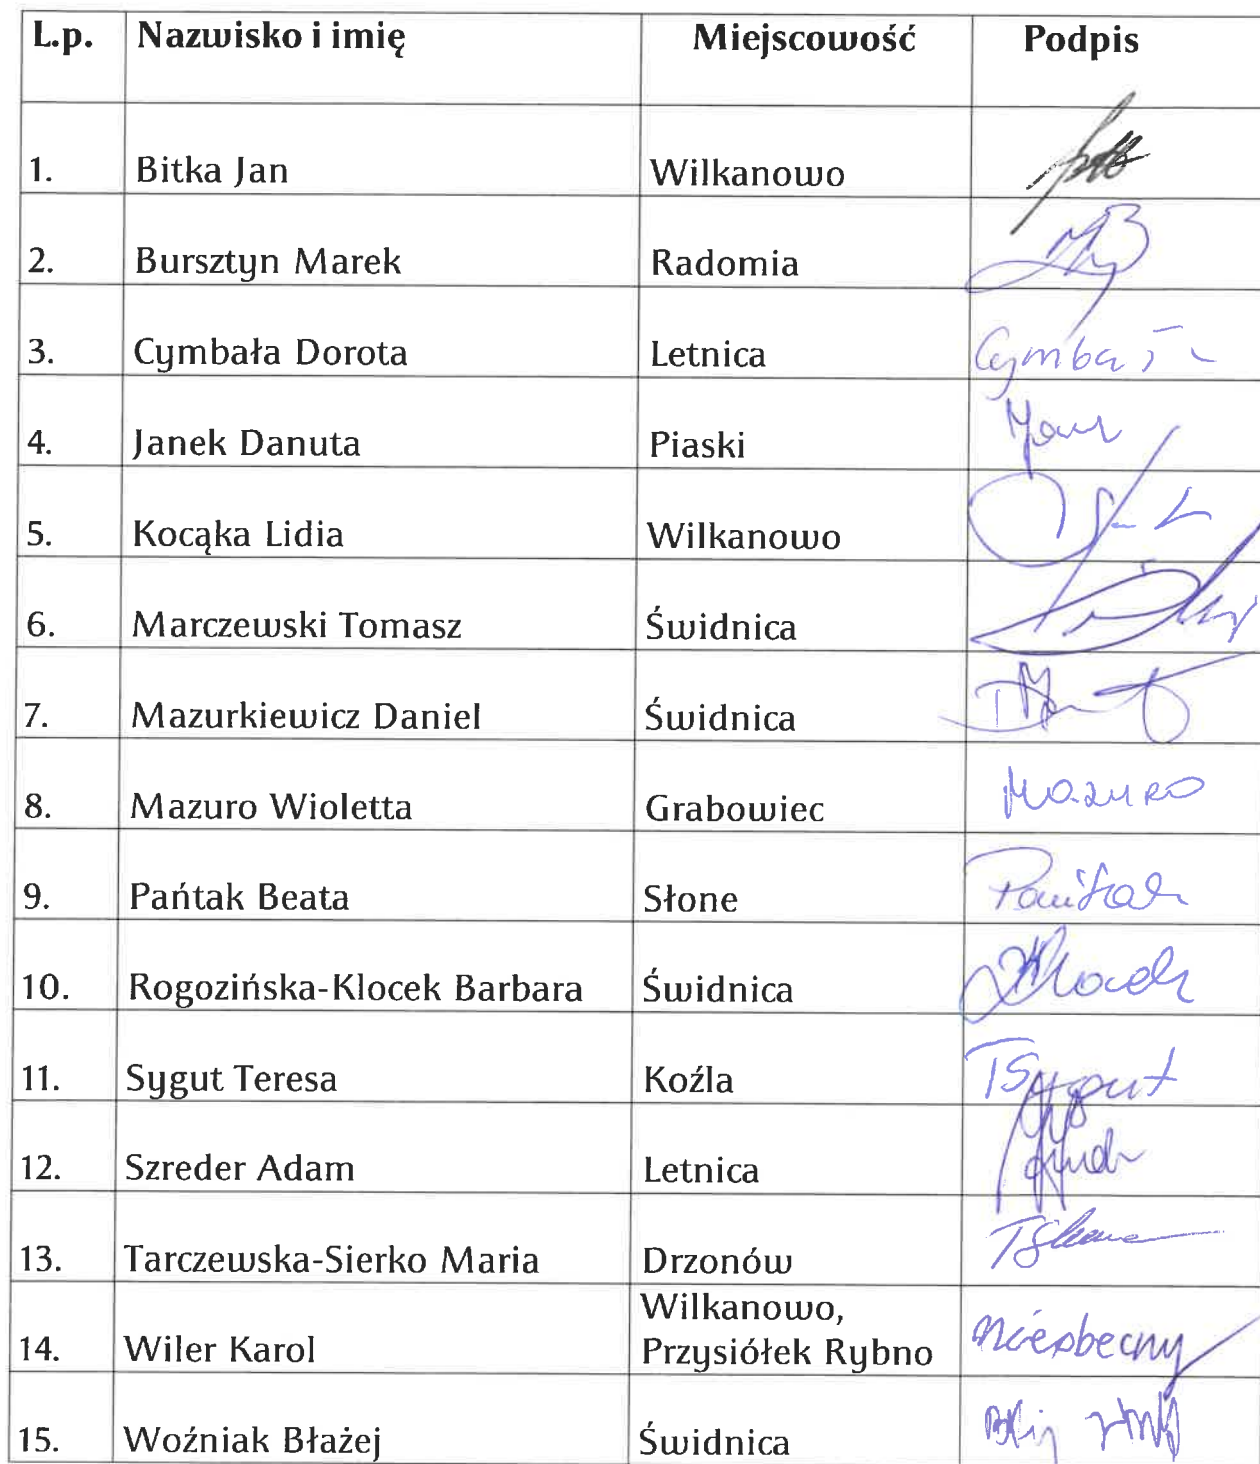 L.p. Nazwisko i imię Miejscowość Podpis
1. Bitka Jan Wilkanowo
2. Bursztyn Marek Radomia
3. Cymbała Dorota Letnica
4. Janek Danuta Piaski
5. Kocąka Lidia Wilkanowo
6. Marczewski Tomasz Świdnica
7. Mazurkiewicz Daniel Świdnica
8. Mazuro Wioletta Grabowiec Mazuro
9. Pańtak Beata Słone Pańtak
10. Rogozińska-Klocek Barbara Świdnica
11. Sygut Teresa Koźla TSygut
12. Szreder Adam Letnica
13. Tarczewska-Sierko Maria Drzonów
Wilkanowo,
14. Wiler Karol Przysiółek Rybno nieobecny
15. Woźniak Błażej Świdnica